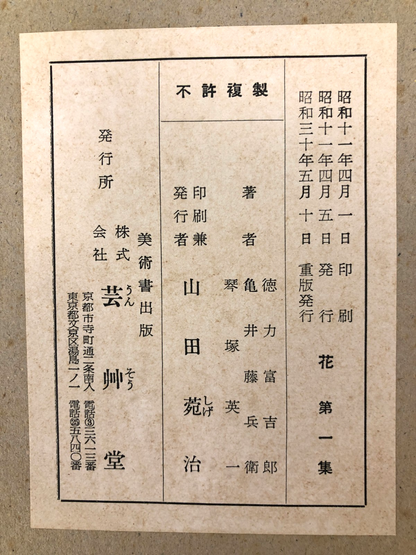 花 第一集
昭和十一年四月一日 印刷
昭和十一年四月五日 発行
昭和三十年五月十日 重版発行
不許複製
著者
徳力富吉郎
亀井藤兵衛
琴塚英一
印刷兼
発行者
山田菀治
しげ
発行所
美術書出版
株式
会社
芸艸堂
うん
そう
京都市寺町通二条南入 電話③三六一三番
東京都文京区湯島一ノ一 電話五八四〇番